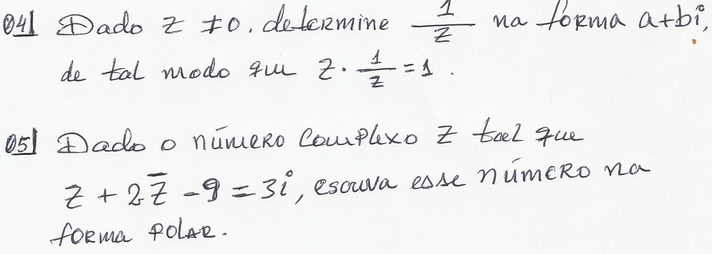 04| Dado z ≠ 0, determine 1/z na forma a+bi,
de tal modo que z · 1/z = 1.
05| Dado o número complexo z tal que
z + 2z̄ - 9 = 3i, escreva esse número na
forma polar.